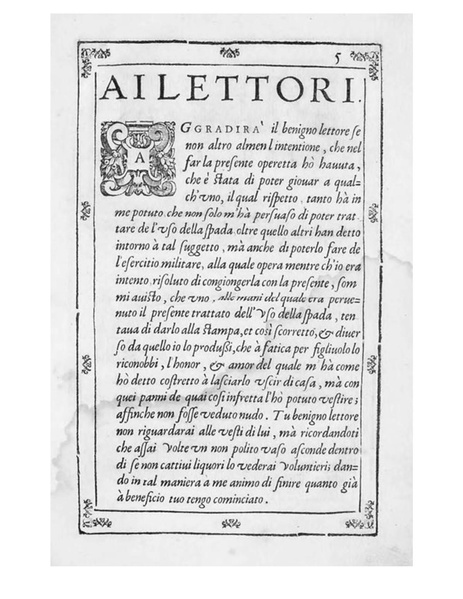 5
AI LETTORI.
AGGRADIRA' il benigno lettore se
non altro almen l'intentione, che nel
far la presente operetta hò hauuta,
che è stata di poter giouar a qual-
ch'vno, il qual rispetto tanto hà in
me potuto che non solo m'hà persuaso di poter trat
tare de l'vso della spada oltre quello altri han detto
intorno à tal suggetto, mà anche di poterlo fare de
l'esercitio militare, alla quale opera mentre ch'io era
intento risoluto di congiongerla con la presente, som
mi auisto, che vno, alle mani del quale era perue-
nuto il presente trattato dell'vso della spada, ten
taua di darlo alla stampa, et così scorretto, & diuer
so da quello io lo produssi, che à fatica per figliuolo lo
riconobbi, l'honor, & amor del quale m'hà come
hò detto costretto à lasciarlo vscir di casa, mà con
quei panni de quai così infretta l'hò potuto vestire;
affinche non fosse veduto nudo. Tu benigno lettore
non riguardarai alle vesti di lui, mà ricordandoti
che assai volte vn non polito vaso asconde dentro
di se non cattiui liquori lo vederai voluntieri; dan-
do in tal maniera a me animo di finire quanto già
à beneficio tuo tengo cominciato.